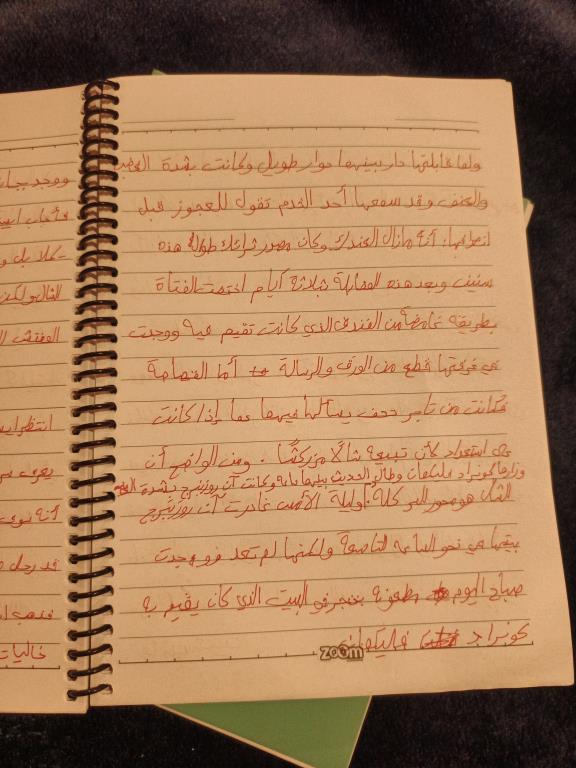 ولما قابلتها دار بينهما حوار طويل وكانت بشدة الغضب
والعنف وقد سمعها أحد الخدم تقول للعجوز قبل
انصرافها: أنه مازال عندك وكان مصدر ثرائك طوال هذه
سنين وبعد هذه المقابلة بثلاثة أيام اختفت الفتاة
بطريقه غامضة من الفندق الذي كانت تقيم فيه ووجدت
في غرفتها قطع من الورق والرسالة أما القصاصة
فكانت من تاجر تحف يسألها فيها عما إذا كانت
على استعداد لأن تبيعه شالًا مزركشًا. ومن الواضح أن
وزارها كونراد فليكهان وطال الحديث بينهما وكانت آن روزنبرج بشدة
الشال هو محور المشكلة. وليلة الأمس غادرت آن روزنبرج
بيتها في نحو الساعه التاسعة ولكنها لم تعد فوجدت
صباح اليوم مطعونة بخنجر في البيت الذي كان يقيم به
كونراد فليكهان
zoom
ووجد بجا
فأجاب
كلا بل و
الشال ولكن
المفتش
انتظر
يعرف
أنه
قد رجل
فذهب
خاليات